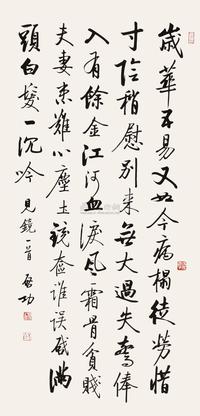 歲華不易又如今病榻徒勞惜
寸陰稍慰別來無大過失驚俸
入有餘金江河血淚風霜骨貧賤
夫妻患難心塵土鏡奩誰誤啟滿
頭白髮一沉吟 見鏡一首 啟功